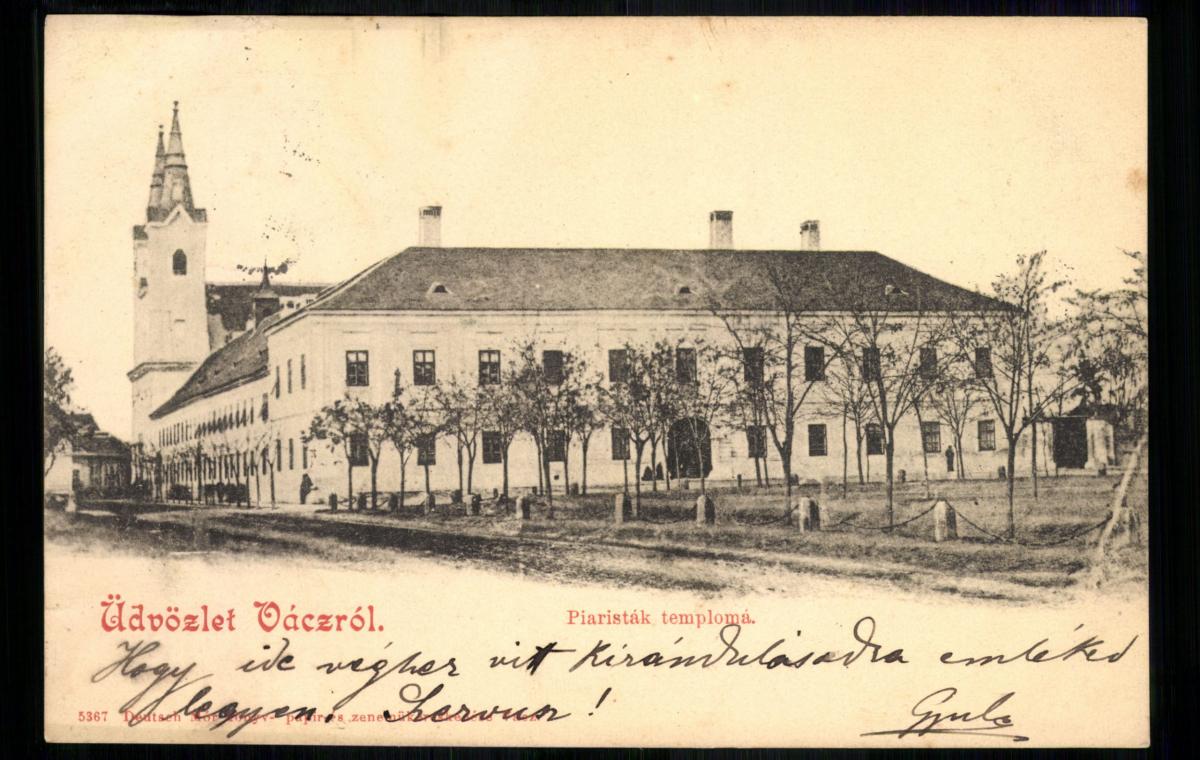 Üdvözlet Váczról.
Piaristák templomá.
Hogy ide végher vitt kirándulásodra emléked
legyen. Servus!
Gyula
5367 Deutsch Mór könyv- papír és zenemű